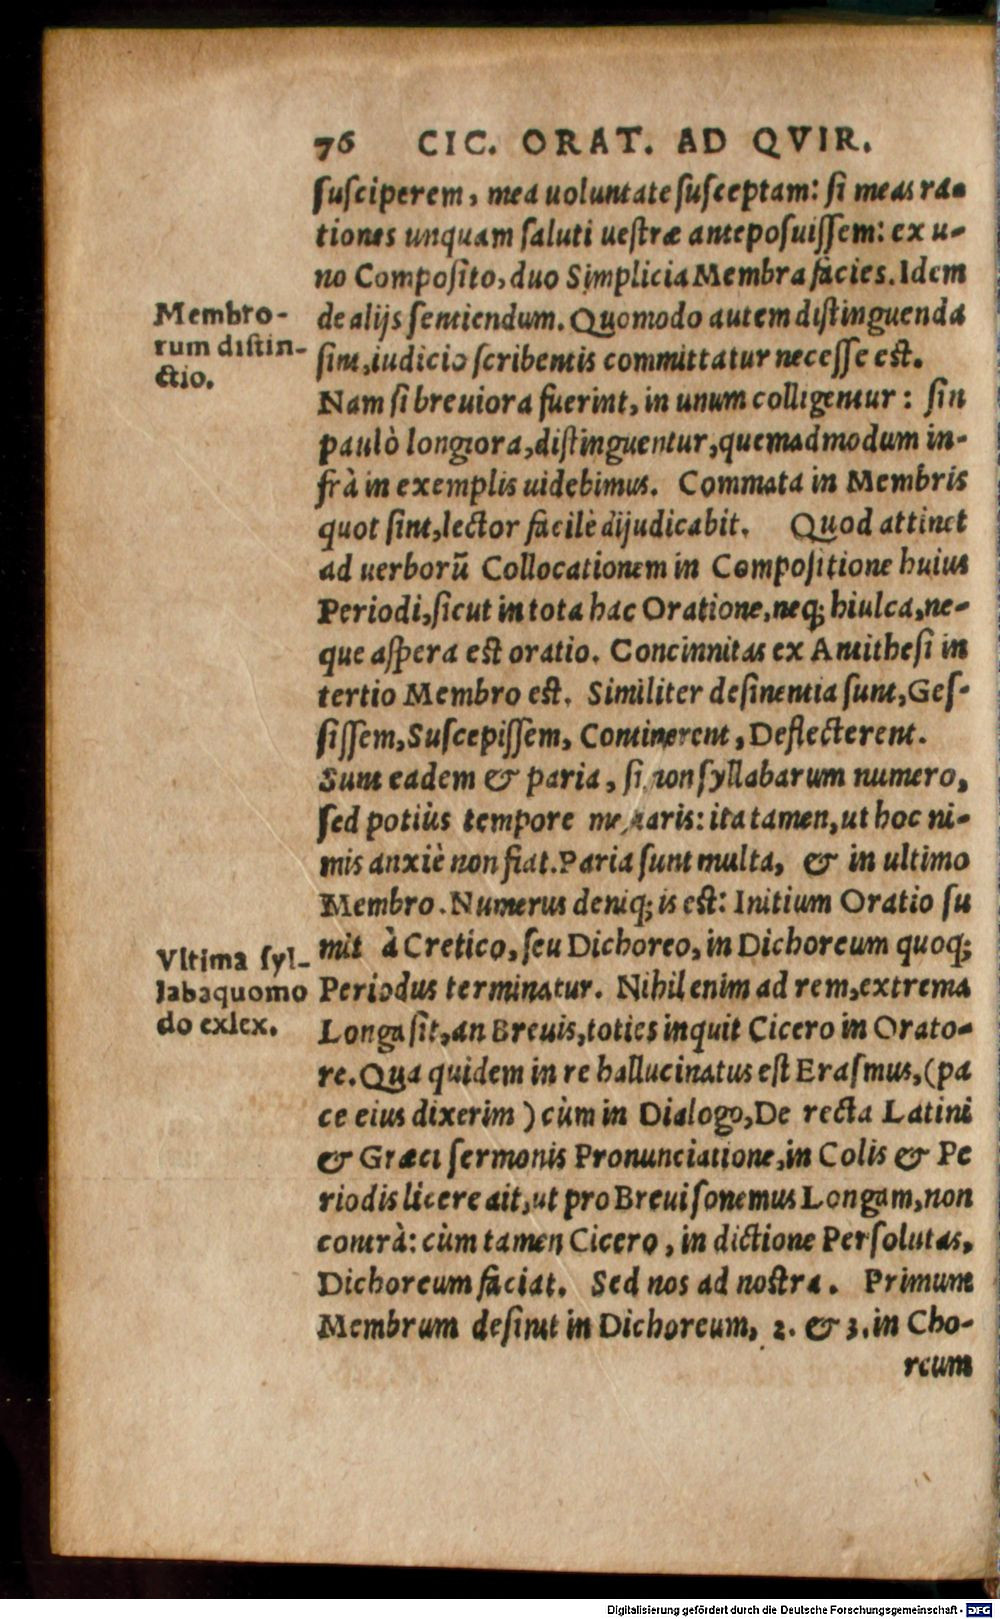 76 CIC. ORAT. AD QVIR.
susciperem, mea uoluntate susceptam: si meas ra-
tiones unquam saluti uestræ anteposuissem: ex u-
no Composito, duo Simplicia Membra facies. Idem
Membro-
rum distin-
ctio.
de alijs sentiendum. Quomodo autem distinguenda
sint, iudicio scribentis committatur necesse est.
Nam si breuiora fuerint, in unum colligentur: sin
paulò longiora, distinguentur, quemadmodum in-
frà in exemplis uidebimus. Commata in Membris
quot sint, lector facilè dijudicabit. Quod attinet
ad uerborū Collocationem in Compositione huius
Periodi, sicut in tota hac Oratione, neq; hiulca, ne-
que aspera est oratio. Concinnitas ex Antithesi in
tertio Membro est. Similiter desinentia sunt, Ges-
sissem, Suscepissem, Continerent, Deflecterent.
Sunt eadem & paria, si non syllabarum numero,
sed potiùs tempore : ita tamen, ut hoc ni-
mis anxiè non fiat. Paria sunt multa, & in ultimo
Membro. Numerus deniq; is est: Initium Oratio su
Vltima syl-
laba quomo
do exlex.
mit à Cretico, seu Dichoreo, in Dichoreum quoq;
Periodus terminatur. Nihil enim ad rem, extrema
Longa sit, an Breuis, toties inquit Cicero in Orato-
re. Qua quidem in re hallucinatus est Erasmus, (pa
ce eius dixerim) cùm in Dialogo, De recta Latini
& Græci sermonis Pronunciatione, in Colis & Pe
riodis licere ait, ut pro Breui sonemus Longam, non
contrà: cùm tamen Cicero, in dictione Persolutas,
Dichoreum faciat. Sed nos ad nostra. Primum
Membrum desinit in Dichoreum, 2. & 3. in Cho-
reum
Digitalisierung gefördert durch die Deutsche Forschungsgemeinschaft - DFG